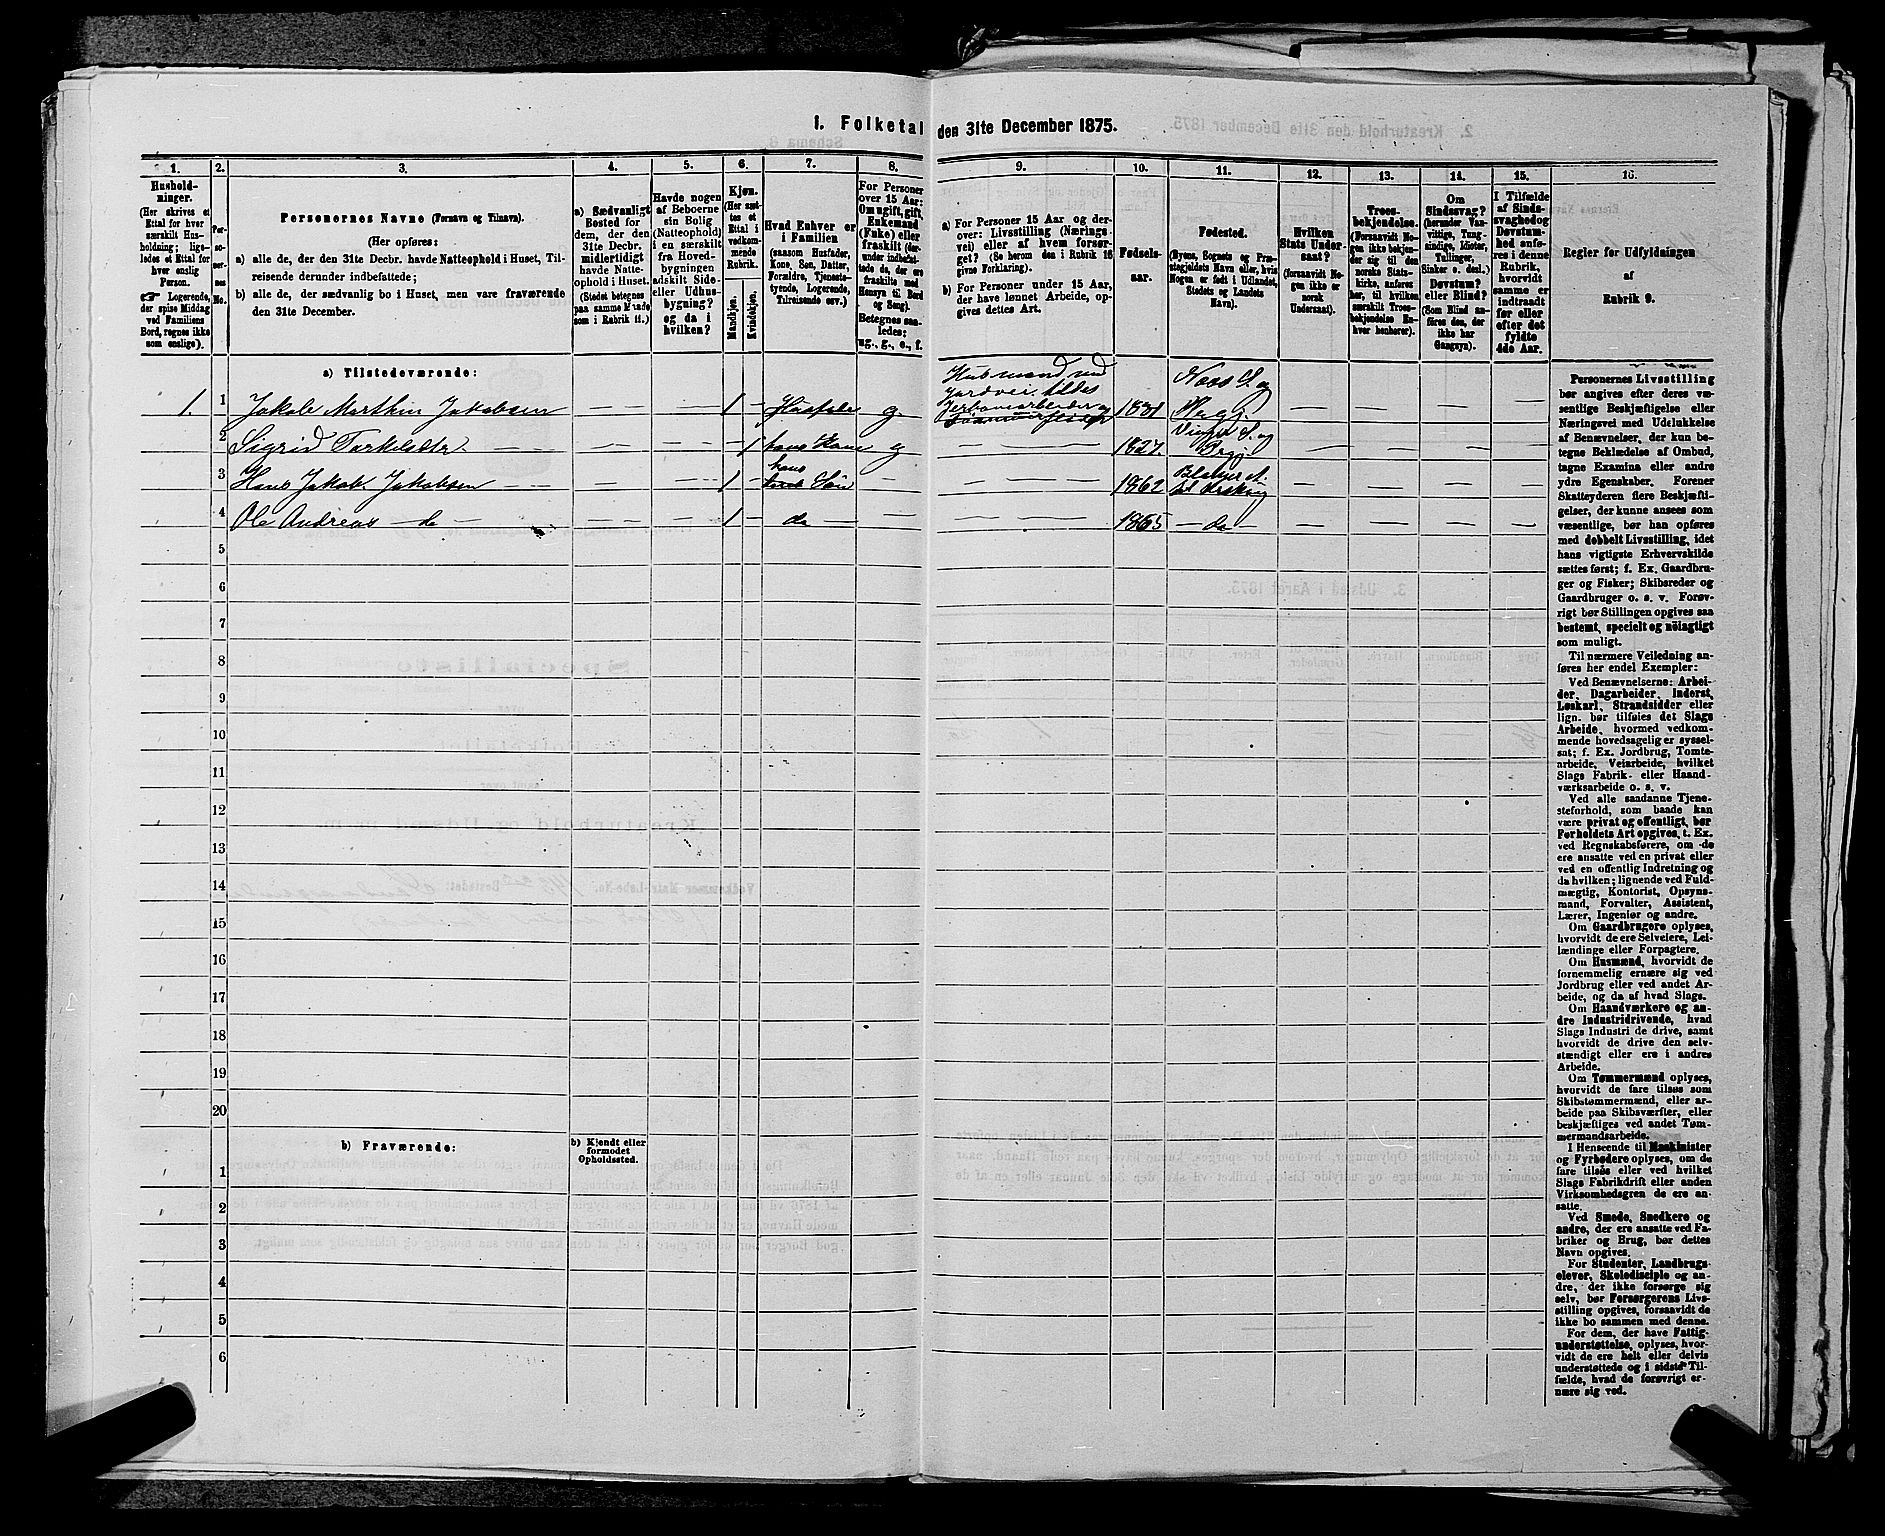 1. Folketal den 31te December 1875.
1.
2.
3.
4.
5.
6.
7.
8.
9.
10.
11.
12.
13.
14.
15.
16.
Hushold-
ninger.
(Her skrives et
Ettal for hver
særskilt Hus-
holdning; lige-
ledes et Ettal for
hver enslig
Person.
☞ Logerende,
der spise Middag
ved Familiens
Bord, regnes ikke
som enslige).
Per-
so-
ner-
nes
No.
Personernes Navne (Fornavn og Tilnavn).
(Her opføres:
a) alle de, der den 31te Decbr. havde Natteophold i Huset, Til-
reisende derunder indbefattede;
b) alle de, der sædvanlig bo i Huset, men vare fraværende
den 31te December.
a) Sædvanligt
Bosted for
dem, der den
31te Decbr.
midlertidigt
havde Natte-
ophold i Huset.
(Stedet betegnes
paa samme Maade
som i Rubrik 11.)
Havde nogen
af Beboerne
sin Bolig
(Natteophold)
i en særskilt
fra Hoved-
bygningen
adskilt Side-
eller Udhus-
bygning?
og da i
hvilken?
Kjøn.
(Her sæt-
tes et
Ettal i
vedkom-
mende
Rubrik.
Mandkjøn.
Kvindekjøn.
Hvad Enhver er
i Familien
(saasom Husfader,
Kone, Søn, Datter,
Forældre, Tjeneste-
tyende, Logerende,
Tilreisende osv.)
For Personer
over 15 Aar:
Om ugift, gift,
Enkemand
(Enke) eller
fraskilt (der-
under indbefat-
tede de, der ere
fraskilte med
Hensyn til Bord
og Seng).
Betegnes saa-
ledes:
ug., g., e., f.
a) For Personer 15 Aar og der-
over: Livsstilling (Nærings-
vei) eller af hvem forsør-
get? (Se herom den i Rubrik 16
givne Forklaring).
b) For Personer under 15 Aar,
der have lønnet Arbeide, op-
gives dettes Art.
Fødsels-
aar.
Fødested.
(Byens, Sognets og Præ-
stegjeldets Navn eller, hvis
Nogen er født i Udlandet,
Stedets og Landets
Navn).
Hvilken
Stats Under-
saat?
(forsaavidt No-
gen ikke er
norsk
Undersaat).
Troes-
bekjendelse.
(Forsaavidt No-
gen ikke bekjen-
der sig til den
norske Stats-
kirke, anføres
her, til hvilken
særskilt Troes-
bekjendelse En-
hver henhører).
Om
Sindssvag?
(herunder Van-
vittige, Tung-
sindige, Idioter,
Tullinger,
Sinker o. desl.)
Døvstum?
eller Blind?
(Som Blind an-
føres den, der
ikke har
Gangsyn).
I Tilfælde
af Sinds-
svaghed og
Døvstum-
hed anfø-
res i denne
Rubrik,
hvorvidt
samme er
indtraadt
før eller
efter det
fyldte
4de Aar.
Regler for Udfyldningen
af
Rubrik 9.
a) Tilstedeværende:
1. 1 Jakob Marthin Jakobsen — — 1 — Husfader g. Husmand med Jordvei. 1831 Næs S. og — — — —
2 Sigrid Torkelsdtr. — — — 1 hans Kone g — — 1827. — — — —
3 Hans Jakob Jakobsen — — 1 — hans Søn — — — 1862 — — — —
4 Ole Andreas — do — — — 1 — do — — — — 1865 — do — — — — —
5
6
7
8
9
10
11
12
13
14
15
16
17
18
19
20
b) Fraværende:
b) Kjendt eller
formodet
Opholdssted.
1
2
3
4
5
6
Personernes Livsstilling
bør angives efter deres væ-
sentlige Beskjæftigelse eller
Næringsvei med Udelukkelse
af Benævnelser, der kun be-
tegne Beklædelse af Ombud,
tagne Examina eller andre
ydre Egenskaber. Forener
Skatteyderen flere Beskjæfti-
gelser, der kunne ansees som
væsentlige, bør han opføres
med dobbelt Livsstilling, idet
hans vigtigste Erhvervskilde
sættes først; f. Ex. Gaardbru-
ger og Fisker; Skibsreder og
Gaardbruger o. s. v. Forøv-
rigt bør Stillingen opgives saa
bestemt, specielt og nöiagtigt
som muligt.
Til nærmere Veiledning an-
føres her endel Exempler:
Ved Benævnelserne: Arbei-
der, Dagarbeider, Inderst,
Løskarl, Strandsidder eller
lign. bør tilføies det Slags
Arbeide, hvormed vedkom-
mende hovedsagelig er syssel-
sat; f. Ex. Jordbrug, Tomte-
arbeide, Veiarbeide, hvilket
Slags Fabrik- eller Haand-
værksarbeide o. s. v.
Ved alle saadanne Tjene-
steforhold, som baade kan
være privat og offentligt, bør
Forholdets Art opgives, t. Ex.
ved Regnskabsførere, om de
ere ansatte ved en privat eller
ved en offentlig Indretning og
da hvilken; lignende ved Fuld-
mægtig, Kontorist, Opsyns-
mand, Forvalter, Assistent,
Lærer, Ingeniør og andre.
Om Gaardbrugere oplyses,
hvorvidt de ere Selveiere, Lei-
lændinge eller Forpagtere.
Om Husmænd, hvorvidt de
fornemmelig ernære sig ved
Jordbrug eller ved andet Ar-
beide, og da af hvad Slags.
Om Haandværkere og an-
dre Industridrivende, hvad
Slags Industri de drive, samt
hvorvidt de drive den selv-
stændigt eller ere i andres
Arbeide.
Om Tømmermænd oplyses,
hvorvidt de fare tilsøs som
Skibstømmermænd, eller ar-
beide paa Skibsværfter, eller
beskjæftiges ved andet Tøm-
mermandsarbeide.
I Henseende til Maskinister
og Fyrbødere oplyses, om de
fare tilsøs eller ved hvilket
Slags Fabrikdrift eller anden
Virksomhedsgren de ere an-
satte.
Ved Smede, Snedkere og
andre, der ere ansatte ved Fa-
briker og Brug, bør dettes
Navn opgives.
For Studenter, Landbrugs-
elever, Skoledisciple og an-
dre, der ikke forsørge sig
selv, bør Forsørgerens Livs-
stilling opgives, forsaavidt de
ikke bo sammen med denne.
For dem, der have Fattig-
understøttelse, oplyses, hvor-
vidt de ere helt eller delvis
understøttede og i sidste Til-
fælde, hvad de forøvrigt er-
nære sig ved.